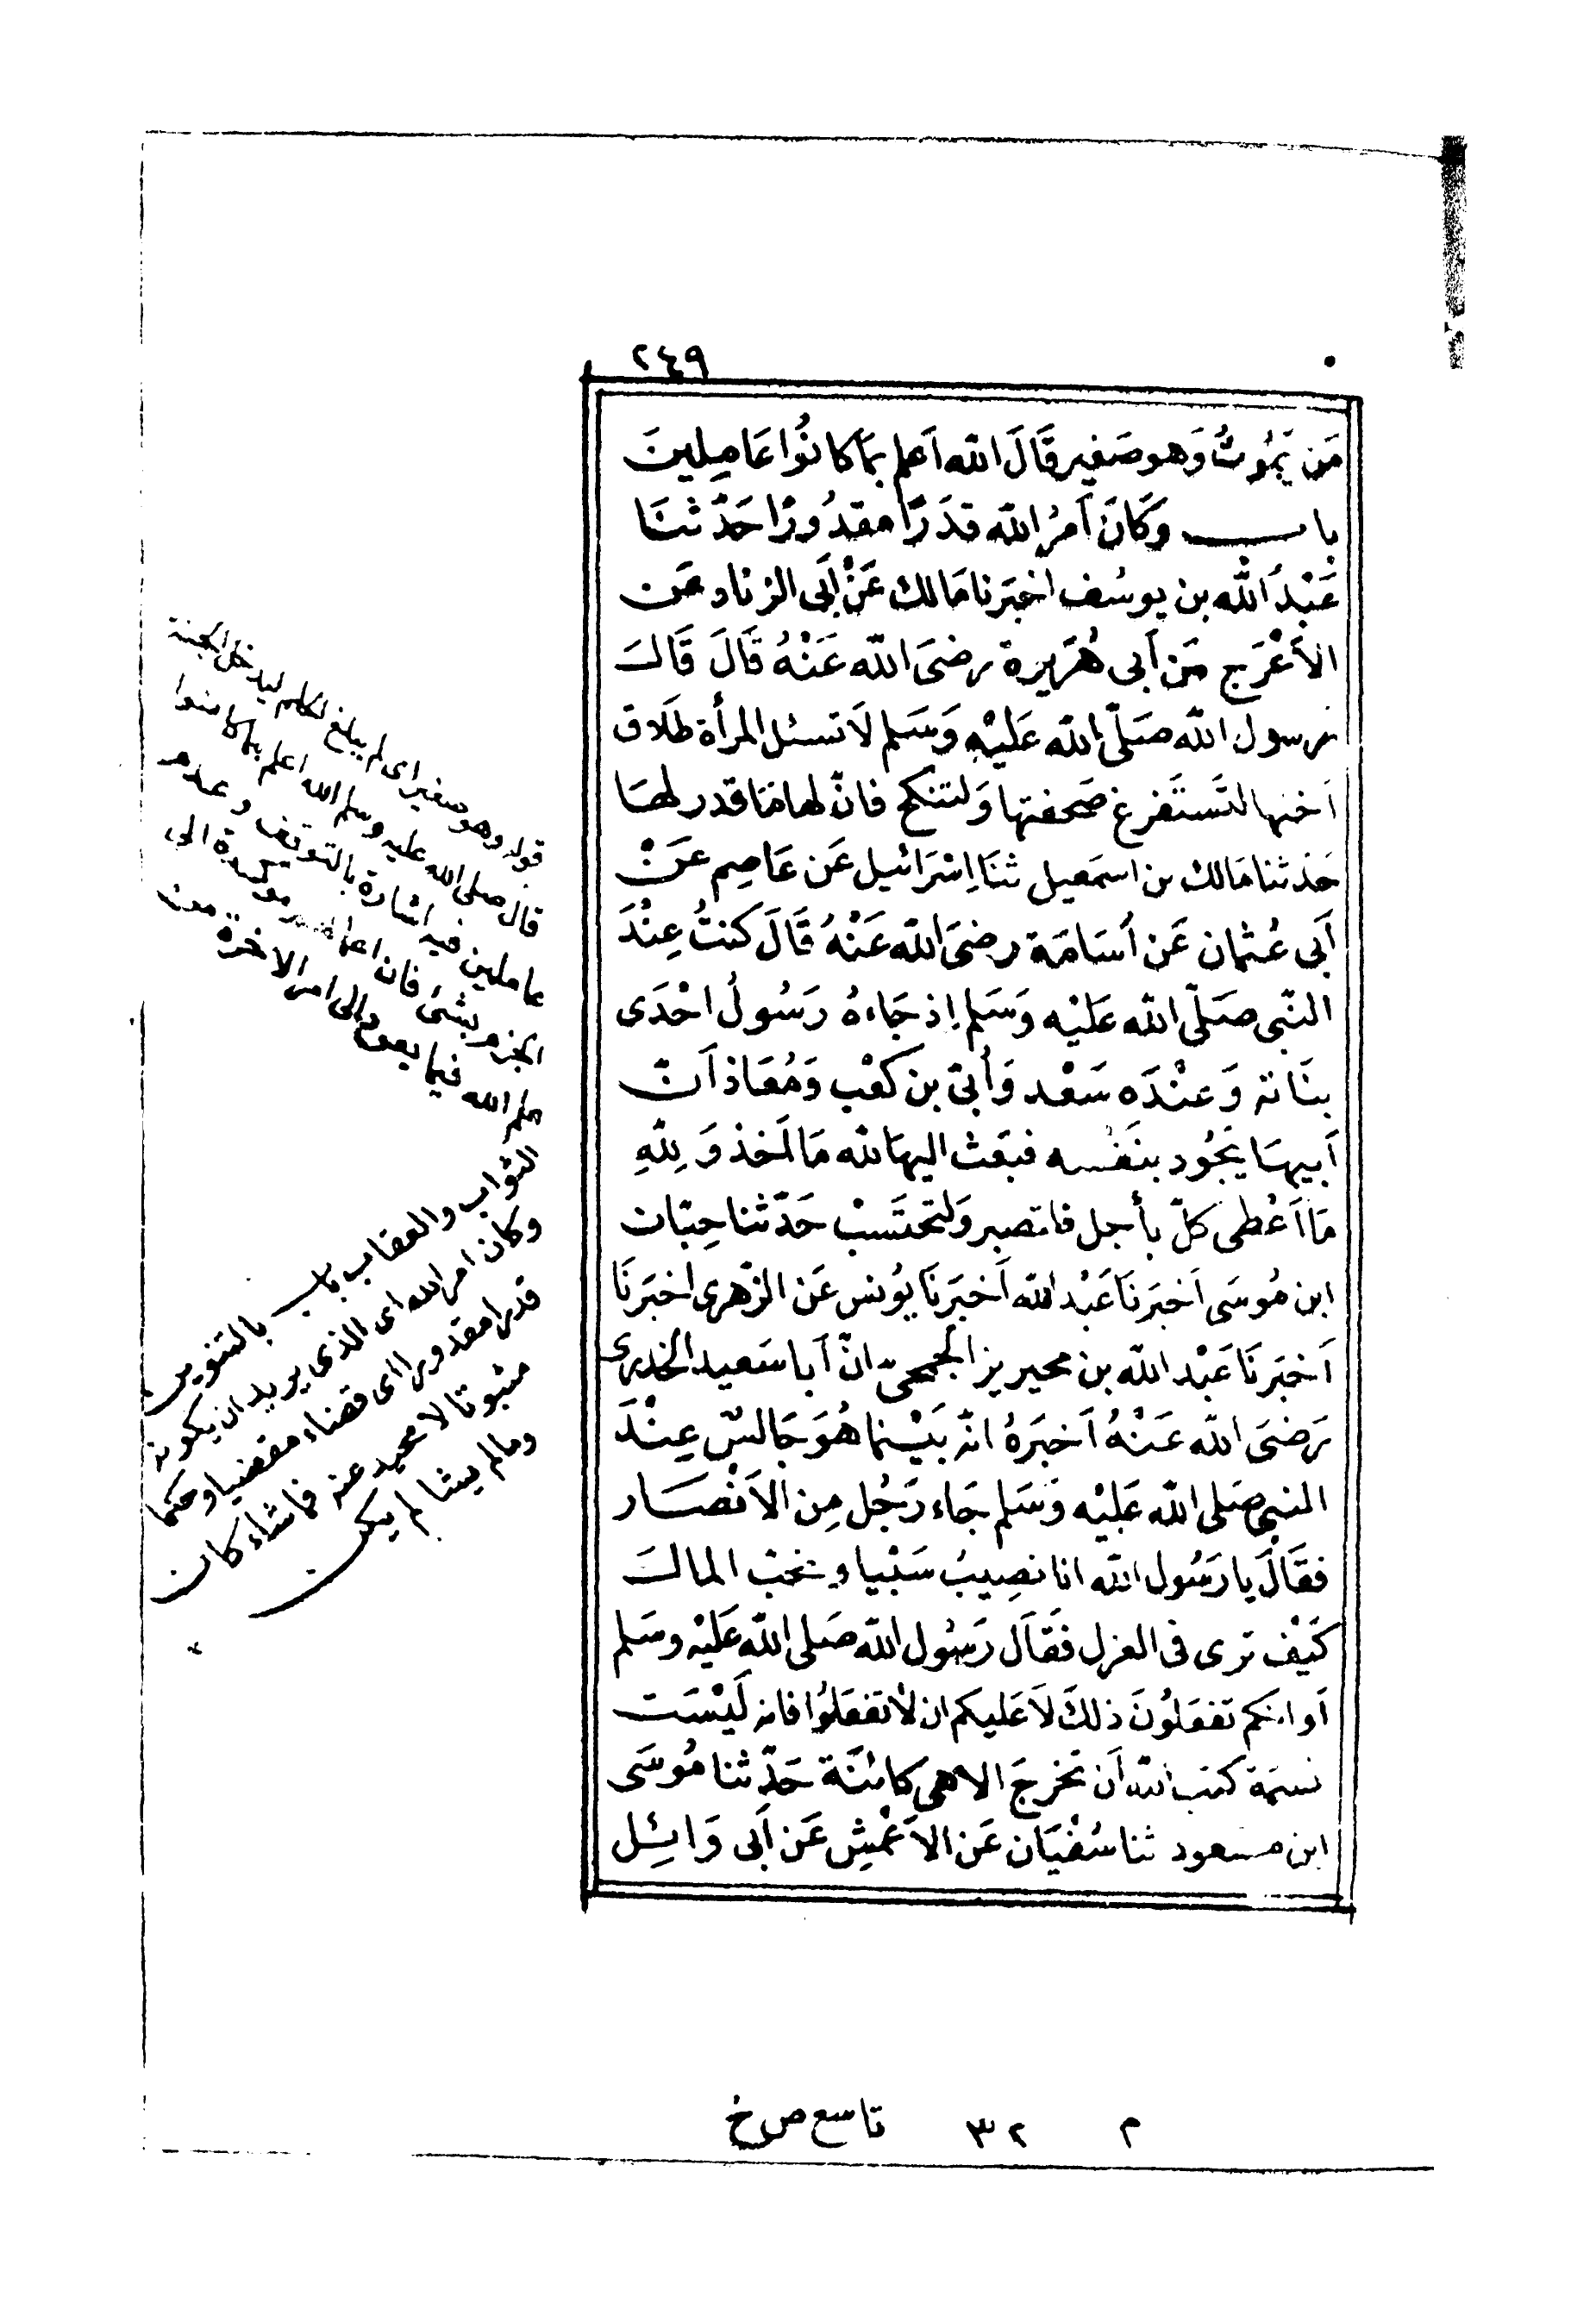 ٢٤٩
مَن يَمُوتُ وَهو صَغير قَالَ الله اَعلم بمَا كانُوا عَامِلِينَ
باب وَكَانَ اَمرُ الله قدَرًا مقدُورًا حَدّثنَا
عَبْدُ الله بن يوسُف اخبَرنا مَالك عَنْ اَبى الزناد عَن
الاَعْرَج عَن اَبى هُرَيرة رضىَ الله عَنْهُ قَالَ قَالَ
رسول الله صَلّى الله عَليْهِ وَسَلم لاَ تسئل المرأة طَلَاق
اختها لتَستَفرغ صَحفتها وَلتنكح فانّ لها مَا قدر لهَا
حَدثنا مَالك بن اسمَعيل ثنَا اِسْرَائيل عَن عَاصِم عَنْ
اَبى عُثمان عَن اُسَامَة رضىَ الله عَنْهُ قَالَ كنتُ عِنْدَ
النّبى صَلّى الله عَليْه وَسَلم اِذ جَاءهُ رَسُولُ احْدَى
بنَاته وَعنْدَه سَعْد وَاُبىّ بن كعْب وَمُعَاذ اَنّ
اَبيهَا يَجُود بنَفْسه فبَعَث اليهَا لله مَا اَخذ وَ لِلّهِ
مَا اَعْطى كلّ بأجل فلتصبر وَلتحتَسبْ حَدّثنا حِبّان
ابن مُوسَى اَخبَرنَا عَبْد الله اَخبَرنَا يوُنس عَن الزّهرى اخبَرنَا
اَخبَرنَا عَبْد الله بن محيريز الجُمحىّ انّ اَبا سَعيد الخدرى
رَضىَ الله عَنْهُ اَخبَرهُ انّه بَيْنما هُوَ جَالسٌ عِنْدَ
النبى صَلى الله عَليْه وَسَلم جَاء رَجُل مِن الاَنْصَار
فقَالَ يا رَسُول الله انا نصِيبُ سَبْيا و نحبّ المالَ
كَيْف ترى فى العزل فقَاَل رَسُول الله صَلى الله عَليْه وسَلم
اَو انكم تفعَلُونَ ذلكَ لاَ عَليكم ان لاَ تفعَلُوا فانه لَيْسَت
نسمَة كتب الله اَن تخرجَ الا هى كائنَة حَدّثنا مُوسَى
ابن مسعود ثنا سُفْيَان عَن الاَعْمشِ عَن اَبى وَائِل
قوله وهو صغير اى لم يبلغ الحلم ليدخل الجنة
قال صلى الله عليه وسلم الله اعلم بما كانوا
عاملين فيه اشارة بالتوقف وعدم
الجزم بشئ فان موكولة الى
علم الله فيما يعود الى امر الاخرة من
الثواب والعقاب باب بالتنوين
وكان امر الله اى الذى يريد ان يكونه
قدرا مقدورا اى قضاء مقضيا وحكما
مثبوتا لا محيد عنه فما شاء كان
وما لم يشا لم يكن
م ٣٢ تاسع ص خ